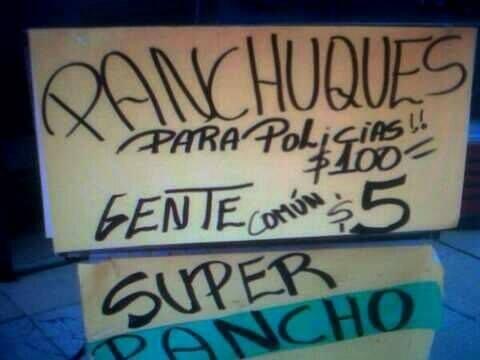 PANCHUQUES
PARA POLiCiAS!!
$100=
GENTE COMÚN $5
SUPER
PANCHO